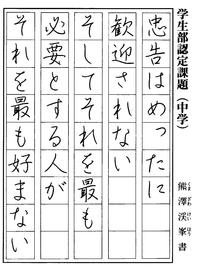 学生部認定課題（中学）
忠告はめったに
歓迎されない
そしてそれを最も
必要とする人が
それを最も好まない
熊澤渓峯書
くまざわけいほう